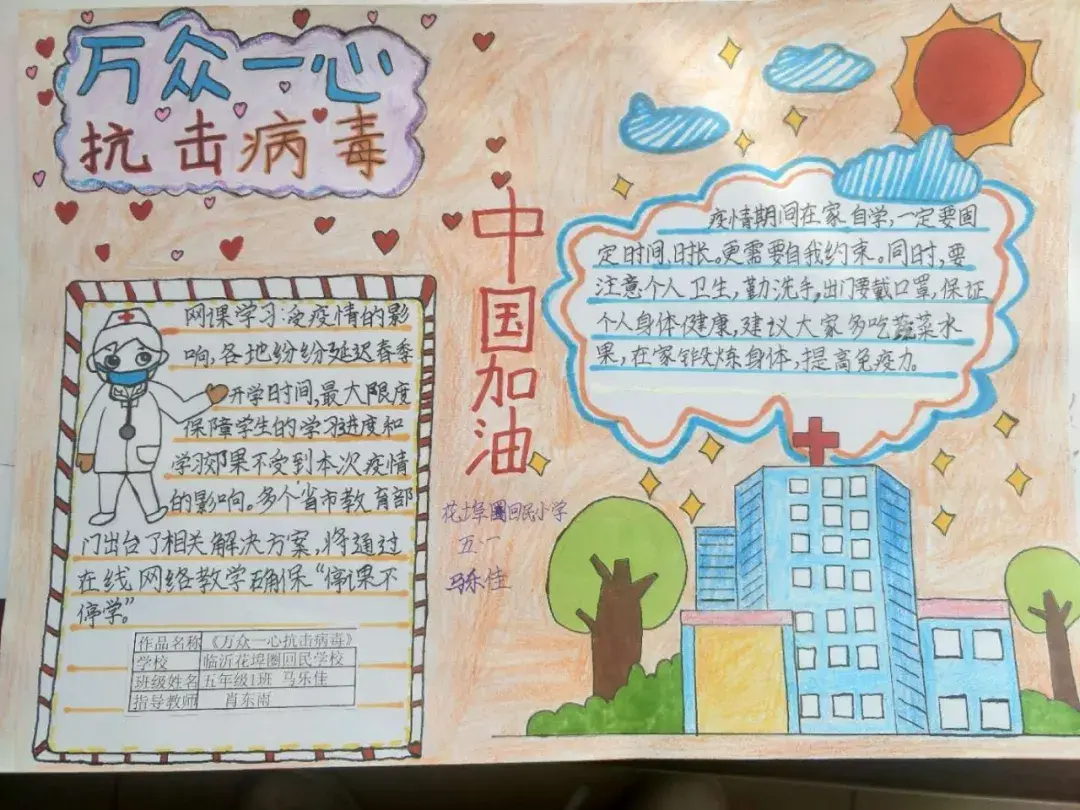 万众一心
抗击病毒
网课学习:受疫情的影
响,各地纷纷延迟春季
开学日时间,最大限度
保障学生的学习进度和
学习效果不受到本次疫情
的影响。多个省市教育部
门出台了相关解决方案,将通过
在线网络教学确保“停课不
停学”。
作品名称 《万众一心抗击病毒》
学校 临沂花埠圈回民学校
班级姓名 五年级1班 马乐佳
指导教师 肖东雨
中国加油
花埠圈回民小学
五.一
马乐佳
疫情期间在家自学,一定要固
定时间、时长。更需要自我约束。同时,要
注意个人卫生,勤洗手,出门要戴口罩,保证
个人身体健康,建议大家多吃蔬菜水
果,在家锻炼身体,提高免疫力。